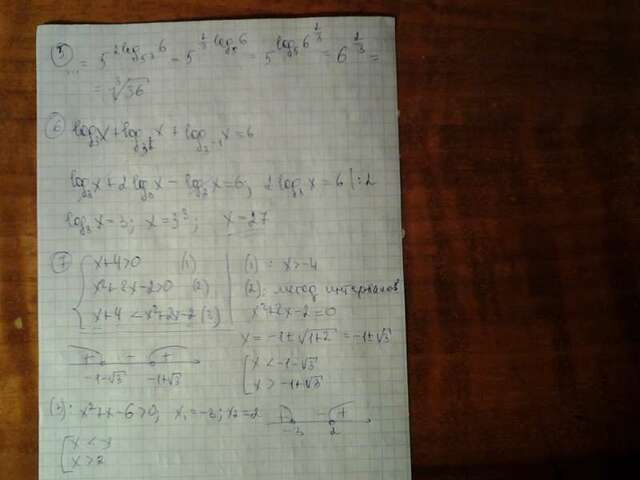 5) ... = 5^{2 log_{5^3} 6} = 5^{\frac{2}{3} log_5 6} = 5^{log_5 6^{\frac{2}{3}}} = 6^{\frac{2}{3}} =
= ∛36
6) log_3 x + log_{3^{\frac{1}{2}}} x + log_{3^{-1}} x = 6
log_3 x + 2 log_3 x - log_3 x = 6; 2 log_3 x = 6 |:2
log_3 x = 3; x = 3^3; x = 27
7) { x+4>0 (1)
x²+2x-2>0 (2)
x+4 < x²+2x-2 (3)
(1): x>-4
(2): метод интервалов
x²+2x-2=0
x = -1±√(1+2) = -1±√3
+ - +
-1-√3 -1+√3
[ x < -1-√3
x > -1+√3
(3): x²+x-6>0; x₁=-3; x₂=2
+ - +
-3 2
[ x < -3
x > 2